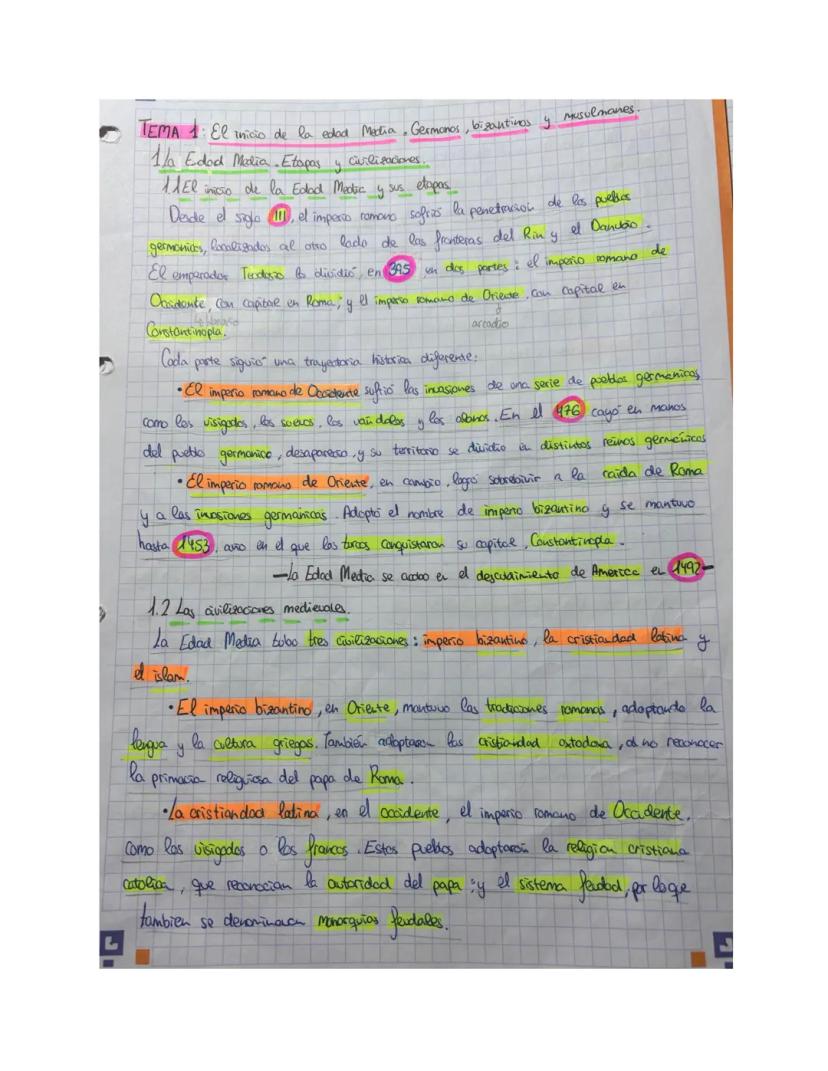 TEMA 1: El inicio de la edad Media. Germanos, bizantinos y musulmanes.
1/la Edad Media. Etapas y civilizaciones.
1.1 El inicio de la Edad Media y sus etapas
Desde el siglo III, el imperio romano sufrió la penetración de los pueblos
germanicos, localizados al otro lado de las fronteras del Rin y el Danubio.
El emperador Teodosio lo dividió, en 395 en dos partes: el imperio romano de
Occidente, con capital en Roma; y el imperio romano de Oriente, con capital en
arcadio
Constantinopla.
Cada parte siguió una trayectoria historica diferente:
• El imperio romano de Occidente sufrió las invasiones de una serie de pueblos germanicos,
como los visigodos, los suevos, los vandalos y los alanos. En el 476 cayó en manos
del pueblo germanico, desaparecio, y su territorio se dividio en distintos reinos germánicos
• El imperio romano de Oriente, en cambio, logró sobrevivir a la caida de Roma
y a las invasiones germanicas. Adoptó el nombre de imperio bizantino y se mantuvo
hasta 1453, año en el que los turcos conquistaron su capital, Constantinopla.
—La Edad Media se acabo en el descubrimiento de America en 1492—
1.2 Las civilizaciones medievales.
La Edad Media tubo tres civilizaciones: imperio bizantino, la cristiandad latina y
el islam.
• El imperio bizantino, en Oriente, mantuvo las tradiciones romanas, adoptando la
lengua y la cultura griegas. También adoptaron las cristiandad ortodoxa, al no reconocer
la primacia religiosa del papa de Roma.
• La cristiandad latina, en el occidente, el imperio romano de Occidente,
como los visigodos o los francos. Estos pueblos adoptaron la religion cristiana
catolica, que reconocian la autoridad del papa; y el sistema feudal, por lo que
tambien se denominaran monarquias feudales.